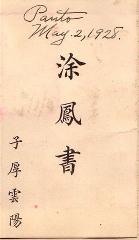 Panto
May. 2, 1928.
涂鳳書
子厚雲陽